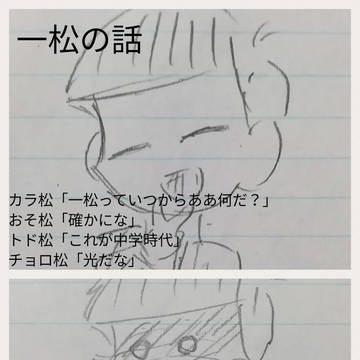 一松の話
カラ松「一松っていつからああ何だ？」
おそ松「確かにな」
トド松「これが中学時代」
チョロ松「光だな」